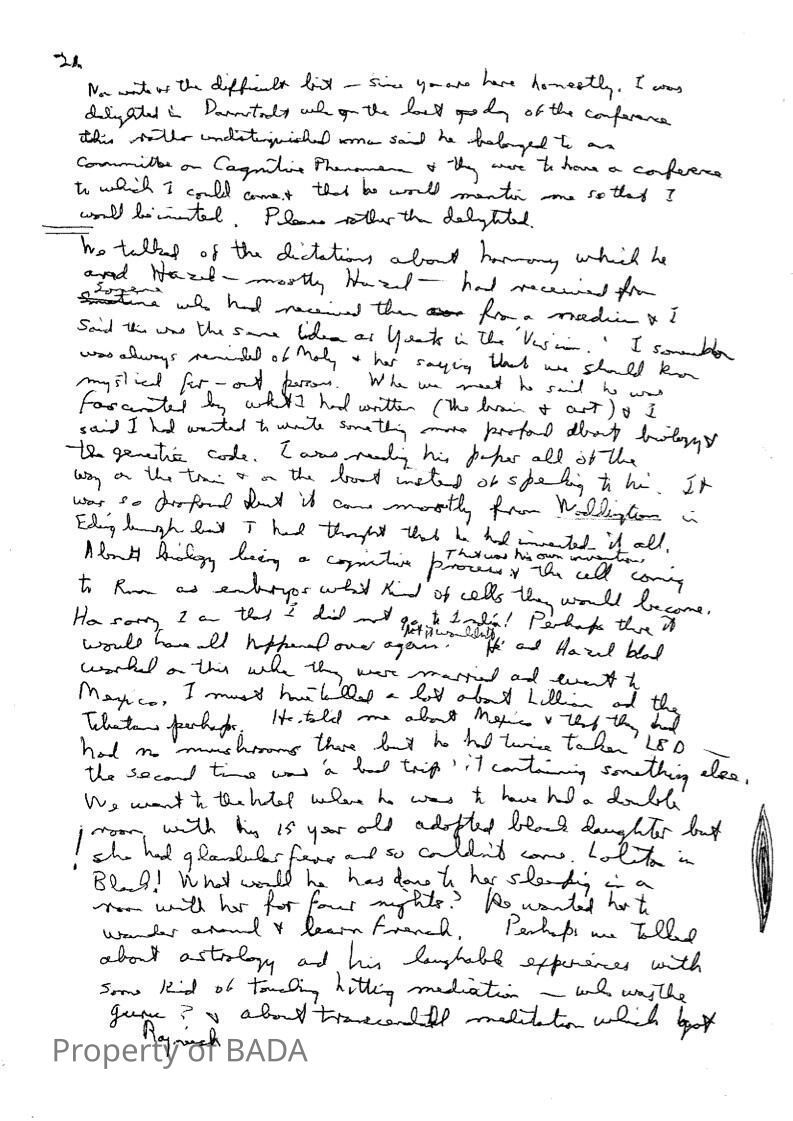 2a
Now write of the difficult bit – since you are here honestly. I was
delighted in Darmstadt when on the last day of the conference
this rather undistinguished man said he belonged to a
Committee on Cognitive Phenomena & they were to have a conference
to which I could come & that he would mention me so that I
would be invited. Please rather than delighted.
We talked of the dictations about harmony which he
and Hazel – mostly Hazel – had received from
someone who had received them from a medium & I
said this was the same idea as Yeats in the 'Vision.' I somehow
was always reminded of Molly & her saying that we should know
mystical far-out persons. When we meet he said he was
fascinated by what I had written (the brain & art) & I
said I had wanted to write something more profound about biology &
the genetic code. I was reading his paper all of the
way on the train & on the boat instead of speaking to him. It
was so profound but it came mostly from Waddington in
Edinburgh but I had thought that he had invented it all.
That was his own invention
About biology being a cognitive process & the cell coming
to know as embryos what kind of cells they would become.
How sorry I am that I did not go to India! Perhaps there it
but it wouldn't
would have all happened over again. He and Hazel had
worked on this when they were married and went to
Mexico. I must have talked a lot about Lillian and the
Tibetans perhaps. He told me about Mexico & that they had
had no mushrooms there but he had twice taken LSD –
the second time was 'a bad trip' it containing something else.
We went to the hotel where he was to have had a double
room with his 15 year old adopted black daughter but
! she had glandular fever and so couldn't come. Lolita in
Black! What would he has done to her sleeping in a
room with her for four nights? He wanted her to
wander around & learn French. Perhaps we talked
about astrology and his laughable experiences with
some kind of touching hitting mediation – who was the
guru? & about transcendtll meditation which got
Rajneesh
Property of BADA